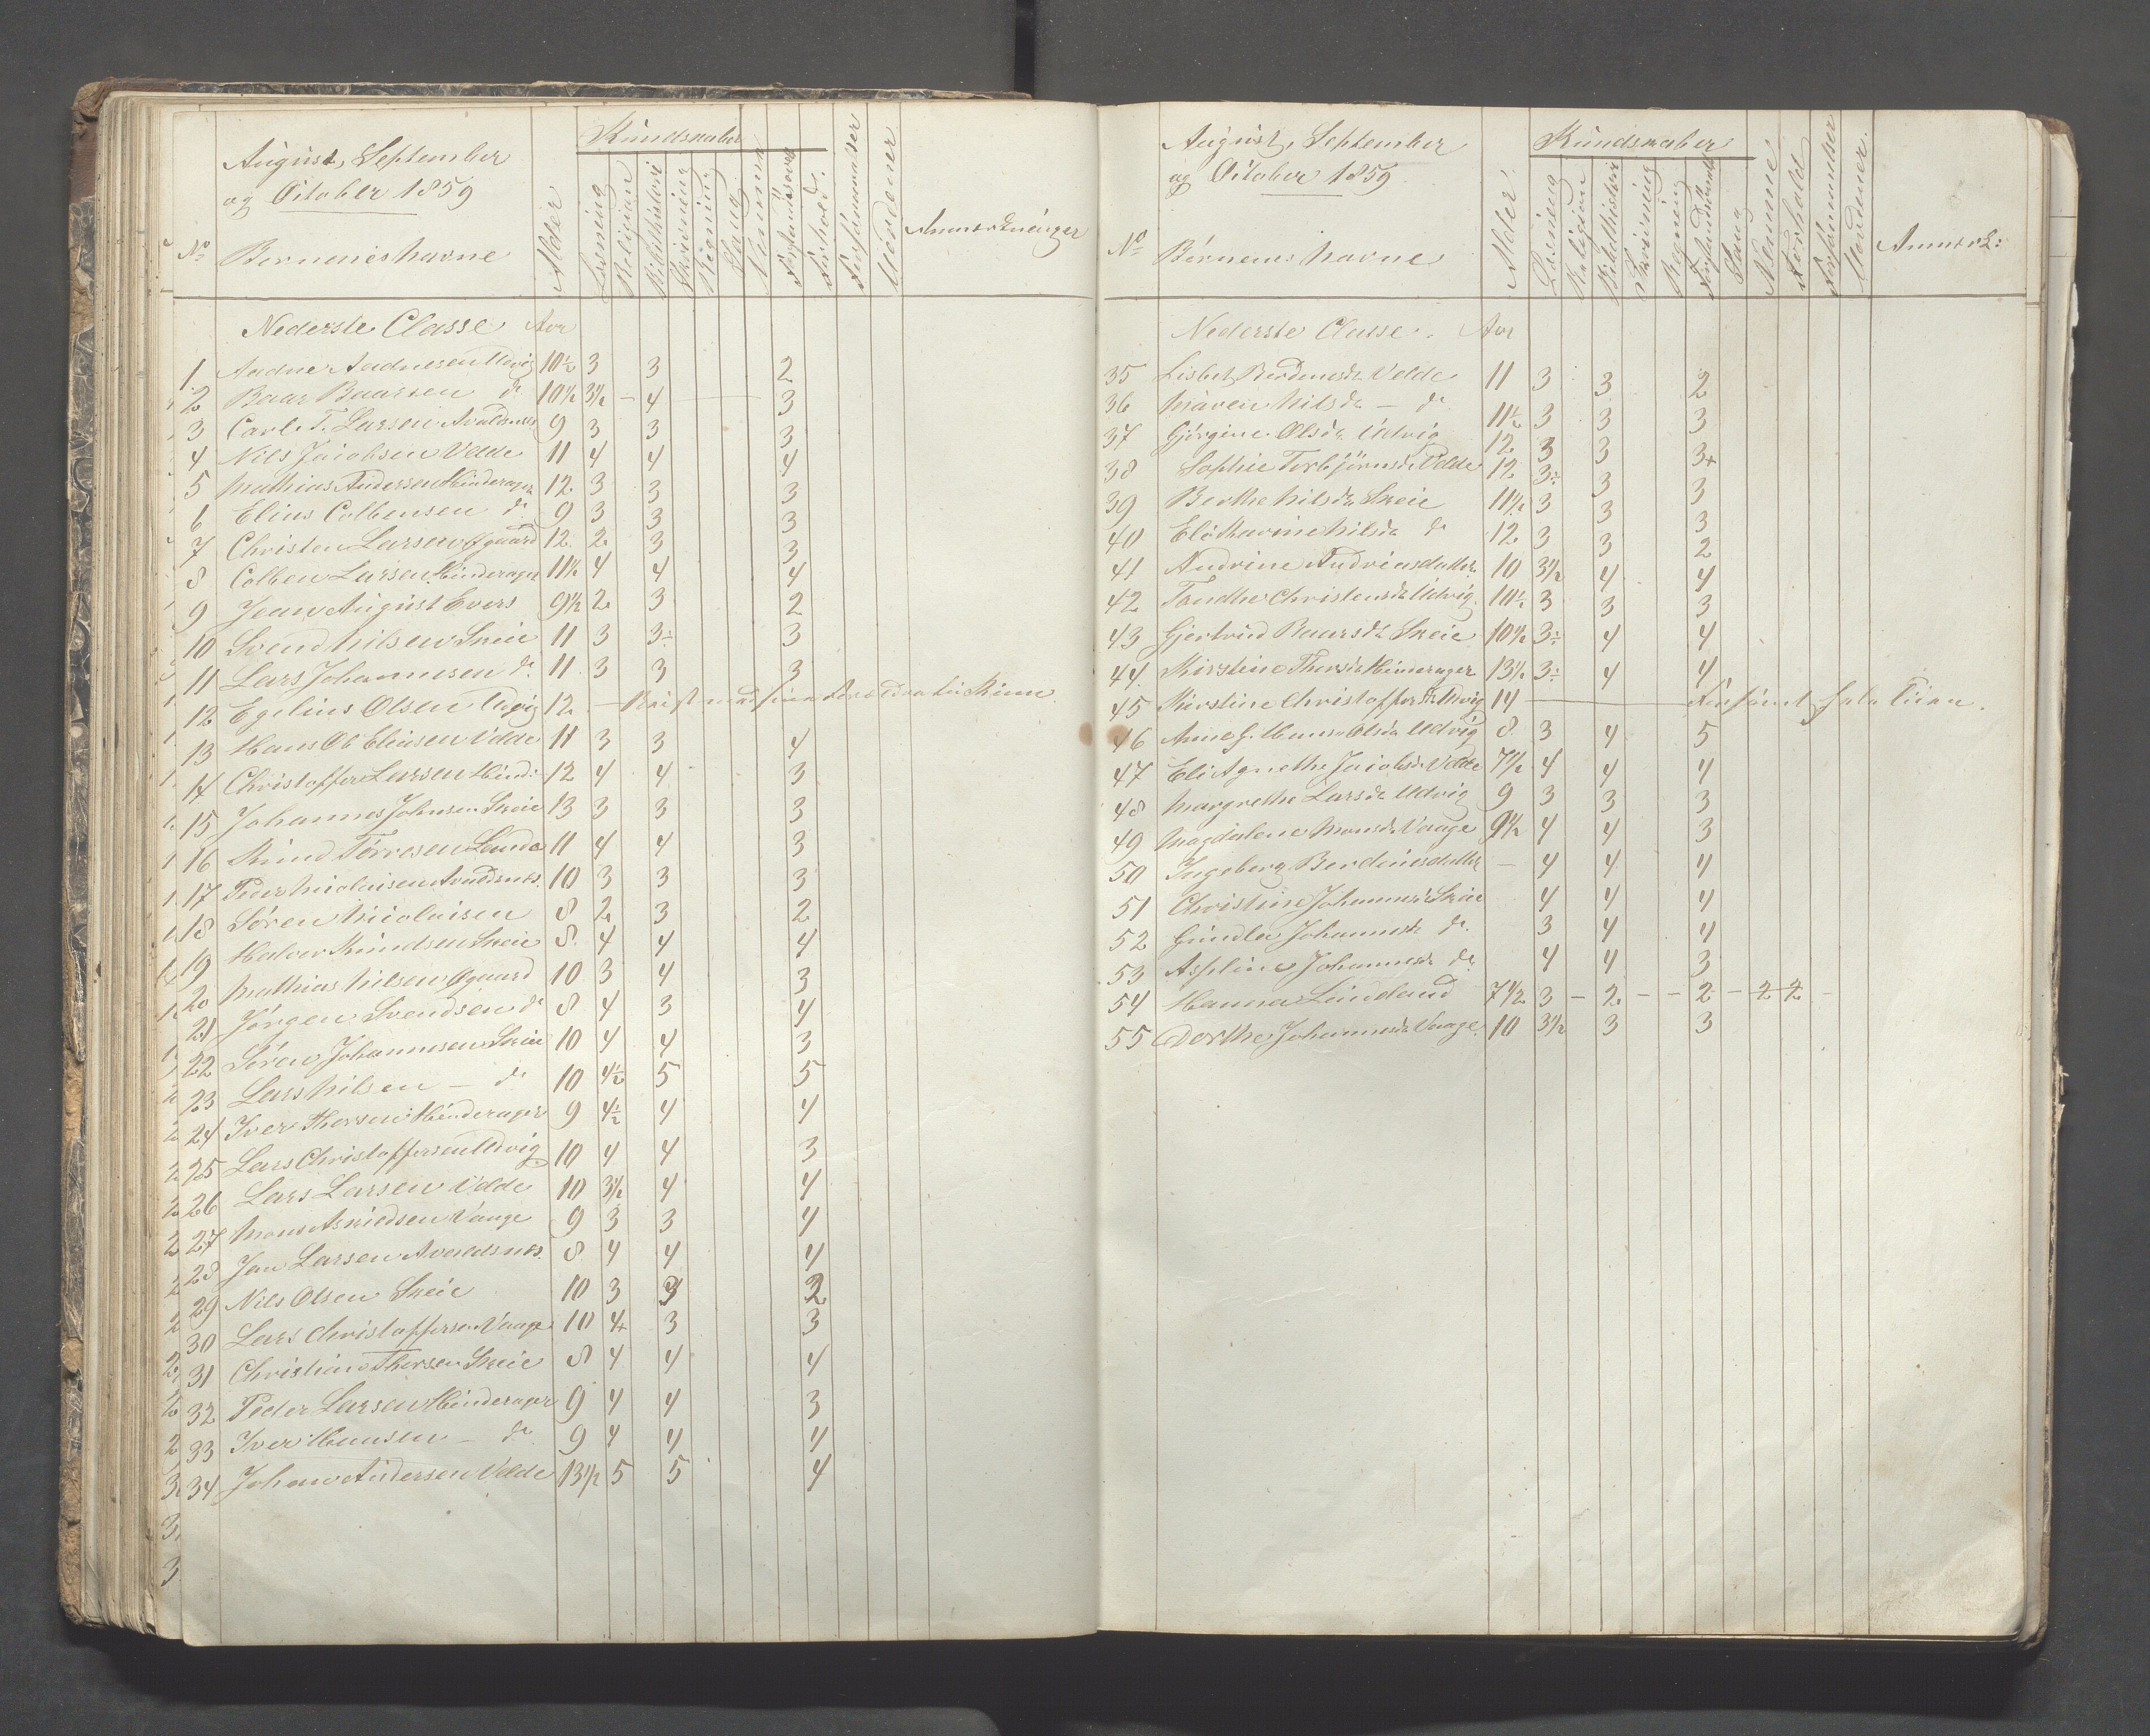 August, September
og October 1859
No Børnenes Navne Alder Kundskaber Læsning Religion Bibelhistori Skrivning Regning Sang Nemme Forstandsøvels Forhold. Forsømmelser Moralener Anmærkninger
Nederste Classe Aar
1. Aadne Aadnesen Udvig 10½ 3 3 2
2 Baar Baarsen do 10½ 3½ - 4 - 3
3 Carl T. Larsen Avaldsnes 9 3 3 3
4 Nils Jacobsen Velde 11 4 4 4
5 Mathias Andersen Hinderager 12. 3 3 3
6 Elius Colbensen do 9 3 3 3
7 Christen Larsen Øgaard 12. 2. 3 3
8 Colben Larsen Hinderager 11½ 4 4 4
9 Jean August Evers 9½ 2. 3 2
10 Svend Nilsen Skeie 11 3 3÷ 3
11 Lars Johannesen do 11 3 3 3
12 Egelius Olsen Udvig 12. - Reist med sine
13 Hans Ob Eliasen Velde 11 3 3 4
14 Christoffer Larsen Hind: 12 4 4 3
15 Johannes Johnsen Skeie 13 3 3 3
16 Knud Tørresen Lande 11 4 4 3
17 Peter Nicolaisen Avaldsnes. 10 3 3 3
18 Søren Nicolaisen 8 2. 3 2
19 Halvor Knudsen Skeie 8. 4 4 4
20 Mathias Nilsen Øgaard 10 3 4 3
21 Jørgen Svendsen do 8 4 3 4
22 Søren Johannesen Skeie 10 4 4 3
23 Lars Nilsen - do 10 4½ 5 5
24 Iver Thorsen Hinderager 9 4½ 4 4
25 Lars Christoffersen Udvig 10 4 4 3
26 Lars Larsen Velde 10 3½ 4 4
27 Mons Askiedsen Vaage 9 3 3 4
28 Jan Larsen Avaldsnes. 8 4 4 4
29 Nils Olsen Skeie 10 3 3 2
30 Lars Christoffersen Vaage 10 4+ 3 3
31 Christian Thorsen Skeie 8 4 4 4
32 Peder Larsen Hinderager 9 4 4 3
33 Iver Hansen - do 9 4 4 4
34 Johan Andersen Velde 13½ 5 5 4
August, September
og October 1859
No Børnenes Navne Alder. Kundskaber Læsning Religion Bibelhistori Skrivning Regning Forstandsøvels Sang Nemme Forhold Forsømmelser Moralener. Anmærk:
Nederste Classe. Aar
35 Lisbet Berdinesdr Velde 11 3 3 2
36 Maren Nilsdr - do 11½ 3 3 3
37 Gjørgine Olsdr Udvig 12 3 3 3+
38 Sophie Torbjørnsdr Velde 12 3÷ 3 3
39 Berthe Nilsdr Skeie 11½ 3 3 3
40 Elo Karine Nilsdr do 12 3 3 2
41 Andrine Andriasdatter 10 3½ 4 4
42 Tondhe Christensdr Udvig. 10½ 3 3 3
43 Gjertrud Baarsdr Skeie 10½ 3÷ 4 4
44. Kirstine Thorsdr Hinderager 13½ 3÷ 4 4
45 Kirstine Christoffersdr Udvig 14 - Forsømt hele Tiden.
46 Anne G. Hans Olsdr Udvig 8 3 4 5
47 Eli Agnethe Jacobsdr Velde 7½ 4 4 4
48 Margrethe Larsdr Udvig 9 3 3 3
49 Magdalene Monsdr Vaage 9½ 4 4 3
50 Ingeborg Berdinesdatter - 4 4 4
51 Christine Johannesdr Skeie 4 4 4
52 Gundla Johannesdr do. 3 4 4
53 Aspline Johannesdr do 4 4 3
54 Hanna Lindland 7½ 3 - 2. - - 2 - 2 2 -
55 Dorthe Johannesdr Vaage. 10 3½ 3 3